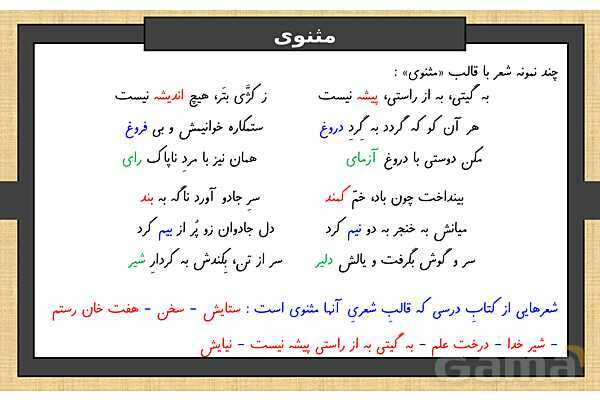 مثنوی
چند نمونه شعر با قالب «مثنوی» :
به گیتی، به از راستی، پیشه نیست ز کژّی بتَر، هیچ اندیشه نیست
هر آن کو که گردد به گِردِ دروغ ستمکاره خوانیمش و بی فروغ
مکن دوستی با دروغ آزمای همان نیز با مردِ ناپاک رای
بینداخت چون باد، خمّ کمند سرِ جادو آورد ناگه به بند
میانش به خنجر به دو نیم کرد دل جادوان زو پُر از بیم کرد
سر و گوش بگرفت و یالش دلیر سر از تن، بِکندش به کردارِ شیر
شعرهایی از کتابِ درسی که قالبِ شعریِ آنها مثنوی است : ستایش - سخن - هفت خان رستم
- شیر خدا - درخت علم - به گیتی به از راستی پیشه نیست - نیایش
Gama